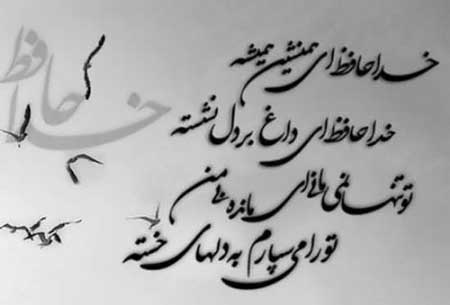 خداحافظ
خداحافظ ای همنشین همیشه
خداحافظ ای داغ بر دل نشسته
تو تنها نمی مانی ای مانده بی من
تو را می سپارم به دلهای خسته